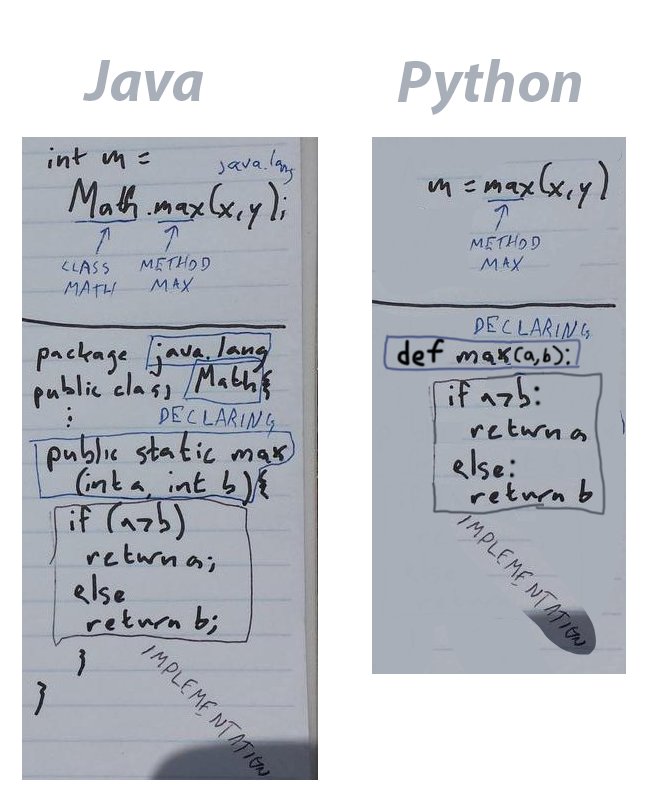 Java
int m =
java.lang
Math.max(x,y);
CLASS
MATH
METHOD
MAX
package java.lang
public class Math{
:
DECLARING
public static max
(int a, int b){
if (a>b)
return a;
else
return b;
}
IMPLEMENTATION
}
Python
m = max(x,y)
METHOD
MAX
DECLARING
def max(a,b):
if a>b:
return a
else:
return b
IMPLEMENTATION